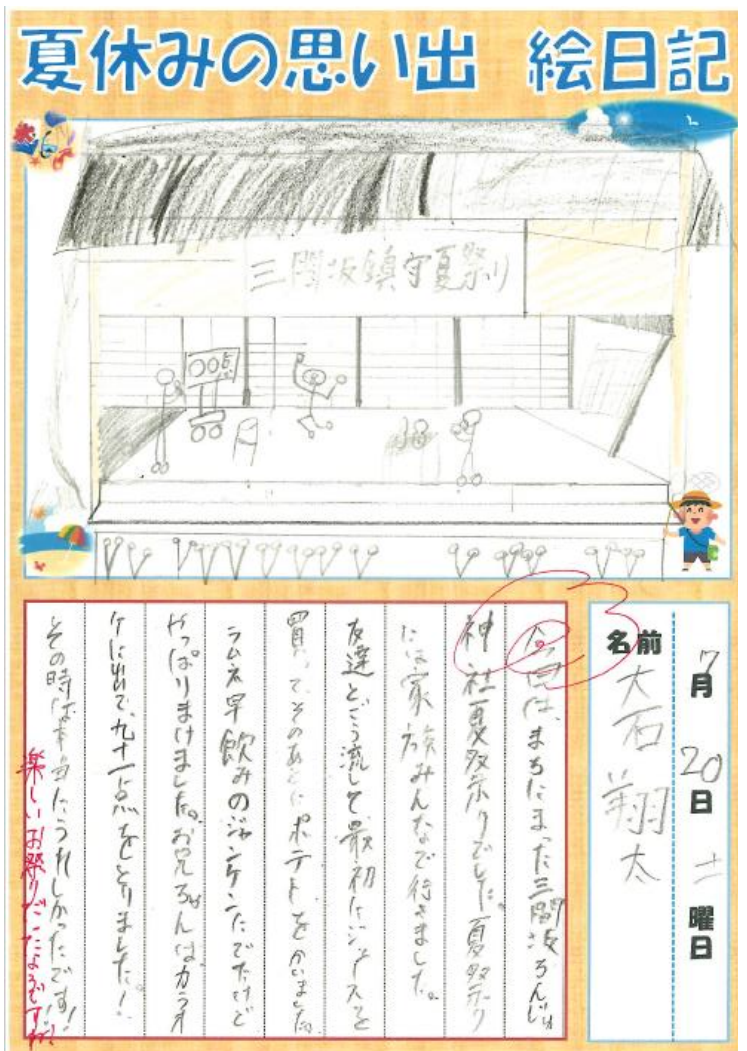 夏休みの思い出 絵日記
三間坂鎮守夏祭り
7月 20日 土曜日
名前 大石 翔太
今日は、まちにまった三間坂ちんじゅ
神社夏祭りでした。夏祭り
には家族みんなで行きました。
友達とごう流して最初にジュースを
買って、そのあとにポテトをかいました。
ラムネ早飲みのジャンケンにでたけど
やっぱりまけました。お兄ちゃんはカラオ
ケに出て、九十一点をとりました!
その時は本当にうれしかったです!
楽しいお祭りだったようですね!